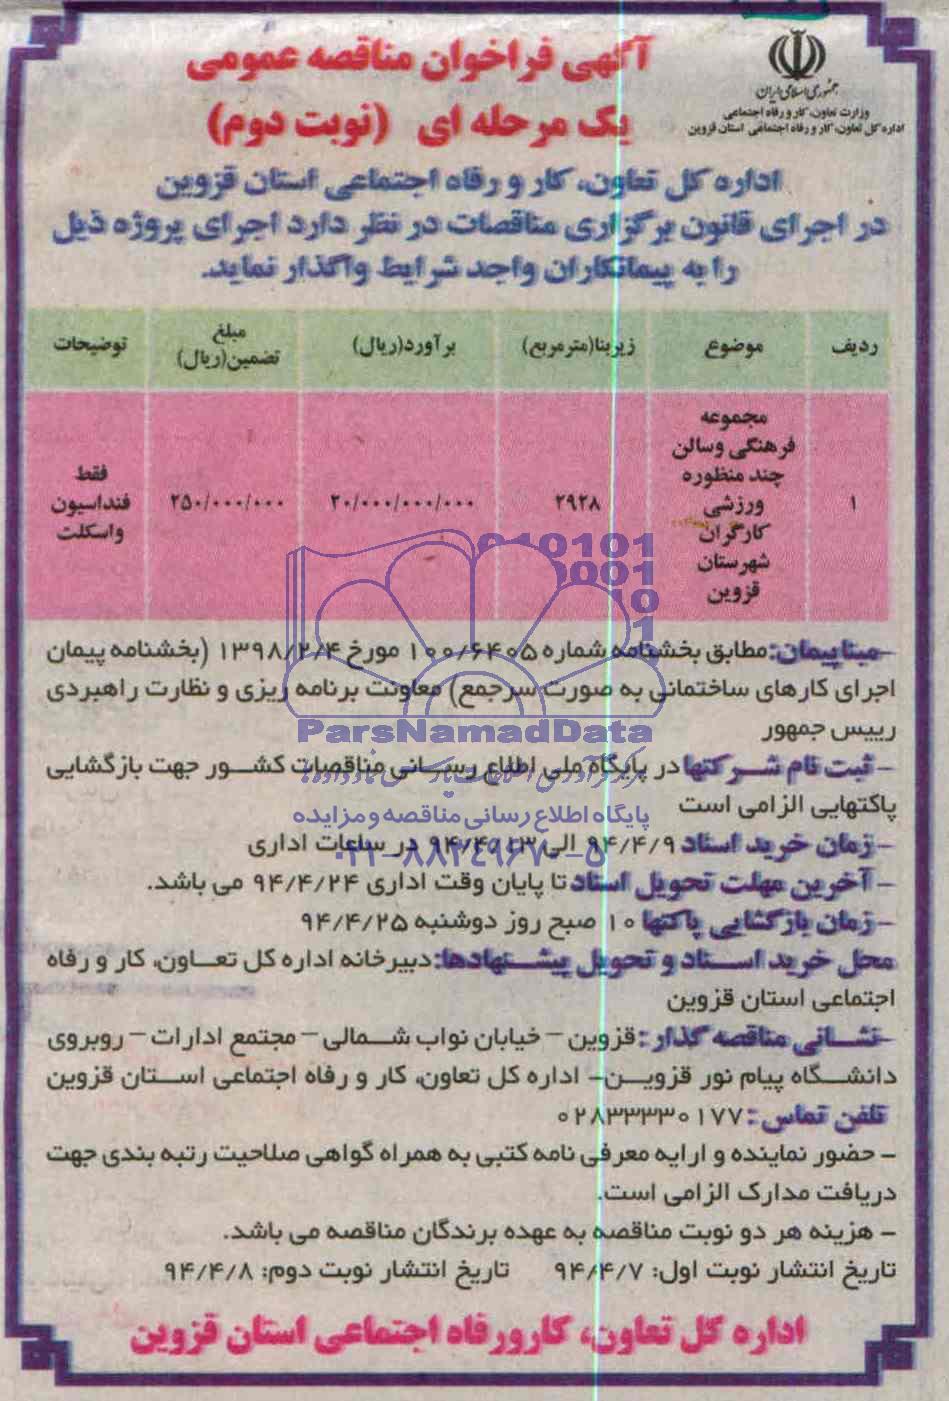 جمهوری اسلامی ایران
وزارت تعاون، کار و رفاه اجتماعی
اداره کل تعاون، کار و رفاه اجتماعی استان قزوین
آگهی فراخوان مناقصه عمومی
یک مرحله ای (نوبت دوم)
اداره کل تعاون، کار و رفاه اجتماعی استان قزوین
در اجرای قانون برگزاری مناقصات در نظر دارد اجرای پروژه ذیل
را به پیمانکاران واجد شرایط واگذار نماید.
ردیف موضوع زیربنا(مترمربع) برآورد(ریال) مبلغ تضمین(ریال) توضیحات
۱ مجموعه فرهنگی وسالن چند منظوره ورزشی کارگران شهرستان قزوین ۲۹۲۸ ۲۰/۰۰۰/۰۰۰/۰۰۰ ۲۵۰/۰۰۰/۰۰۰ فقط فنداسیون واسکلت
-مبناپیمان:مطابق بخشنامه شماره ۱۰۰/۶۴۰۵ مورخ ۱۳۹۸/۲/۴ (بخشنامه پیمان
اجرای کارهای ساختمانی به صورت سرجمع) معاونت برنامه ریزی و نظارت راهبردی
رییس جمهور
- ثبت نام شرکتها در پایگاه ملی اطلاع رسانی مناقصات کشور جهت بازگشایی
پاکتهایی الزامی است
- زمان خرید اسناد ۹۴/۴/۹ الی ۹۴/۴/۱۳ در ساعات اداری
- آخرین مهلت تحویل اسناد تا پایان وقت اداری ۹۴/۴/۲۴ می باشد.
- زمان بازگشایی پاکتها ۱۰ صبح روز دوشنبه ۹۴/۴/۲۵
محل خرید اسناد و تحویل پیشنهادها:دبیرخانه اداره کل تعاون، کار و رفاه
اجتماعی استان قزوین
-نشانی مناقصه گذار: قزوین – خیابان نواب شمالی – مجتمع ادارات – روبروی
دانشگاه پیام نور قزوین– اداره کل تعاون، کار و رفاه اجتماعی استان قزوین
تلفن تماس: ۰۲۸۳۳۳۳۰۱۷۷
- حضور نماینده و ارایه معرفی نامه کتبی به همراه گواهی صلاحیت رتبه بندی جهت
دریافت مدارک الزامی است.
- هزینه هر دو نوبت مناقصه به عهده برندگان مناقصه می باشد.
تاریخ انتشار نوبت اول: ۹۴/۴/۷ تاریخ انتشار نوبت دوم: ۹۴/۴/۸
اداره کل تعاون، کارورفاه اجتماعی استان قزوین
ParsNamadData
پایگاه اطلاع رسانی مناقصه و مزایده
۰۲۱-۸۸۳۴۹۶۷۰-۵